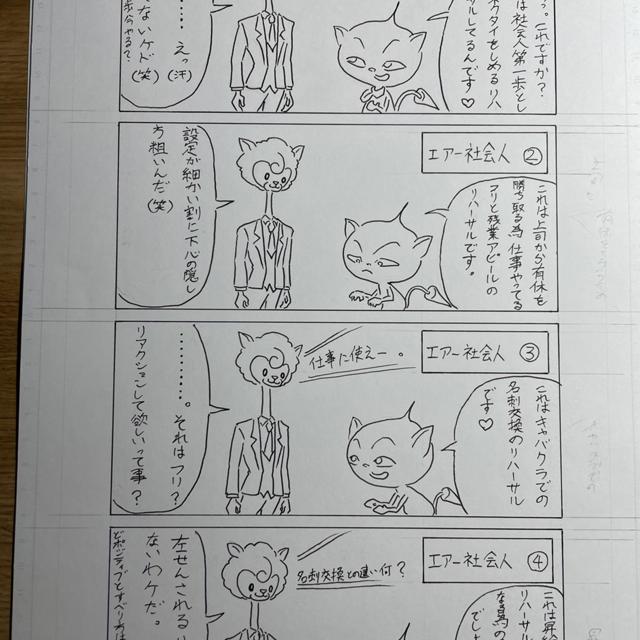 これですか？
は社会人第一歩とし
ネクタイをしめるリハ
サルしてるんです♡
………えっ(汗)
ないケド(笑)
エアー社会人 ②
これは上司から有休を
勝ち取る為 仕事やってる
フリと残業アピールの
リハーサルです。
設定が細かい割に下心の隠し
方粗いんだ(笑)
エアー社会人 ③
これはキャバクラでの
名刺交換のリハーサル
です♡
仕事に使えー。
………。それはフリ？
リアクションして欲しいって事？
エアー社会人 ④
これは昇給
リハーサル
名刺交換との違い何？
左せんされるリ
ないわケだ。